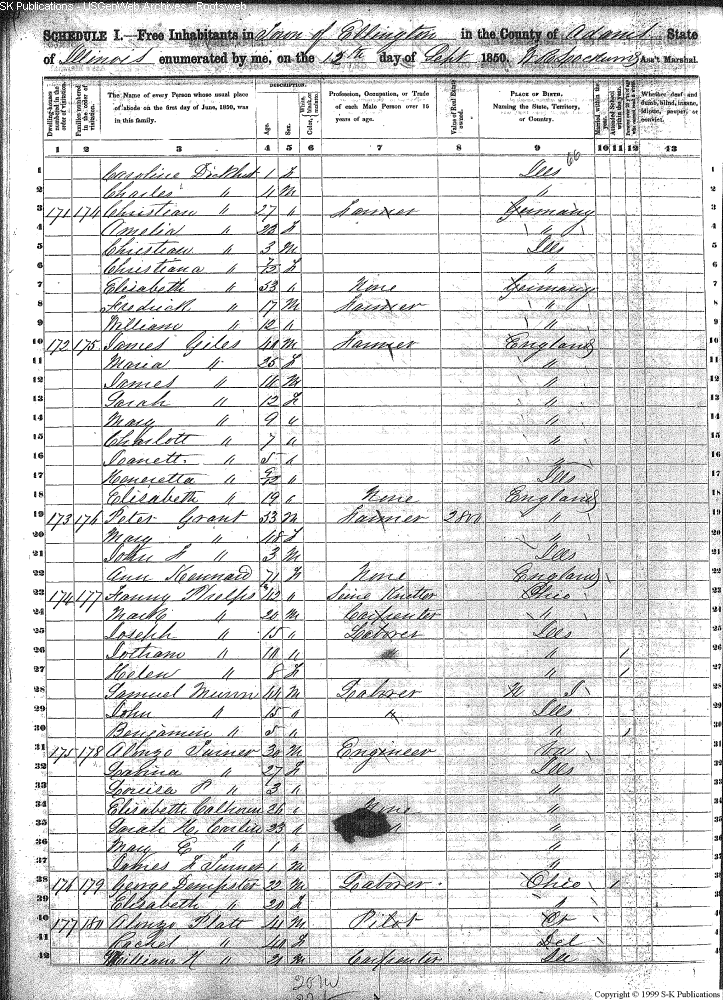 SK Publications - USGenWeb Archives - Rootsweb
SCHEDULE I.—Free Inhabitants in Town of Ellington in the County of Adams State
of Illinois enumerated by me, on the 13th day of Sept 1850. Ass't Marshal.
Dwelling-houses numbered in the order of visitation.
Families numbered in the order of visitation.
The Name of every Person whose usual place of abode on the first day of June, 1850, was in this family.
DESCRIPTION.
Age.
Sex.
Color, White, black, or mulatto.
Profession, Occupation, or Trade of each Male Person over 15 years of age.
Value of Real Estate owned.
PLACE OF BIRTH. Naming the State, Territory, or Country.
Married within the year.
Attended School within the year.
Whether deaf and dumb, blind, insane, idiotic, pauper, or convict.
1 2 3 4 5 6 7 8 9 10 11 12 13
66
1 Caroline 1 f Ills 1
2 Charles " 4 M " 2
3 171 174 Christian " 27 " Farmer Germany 3
4 Amelia " 23 f " 4
5 Christian " 3 M Ills 5
6 Christiana " f " 6
7 Elizabeth " 53 " None Germany 7
8 Fredrick " 17 M Farmer " 8
9 William " 12 " " 9
10 172 175 James Giles M Farmer England 10
11 Maria " 25 f " 11
12 James " 14 M " 12
13 Sarah " 12 f " 13
14 Mary " 9 " " 14
15 Charlott " 7 " " 15
16 " 5 " " 16
17 Henerietta " " Ills 17
18 Elizabeth " 19 " None England 18
19 173 176 Peter Grant 53 M Farmer 2800 " 19
20 Mary " 48 f " 20
21 John F " 3 M Ills 21
22 Ann Kennard 71 f None England 22
23 174 177 Fanny Phelps 42 " Ohio 23
24 Mark " 20 M Carpenter " 24
25 Joseph " 15 " Laborer Ills 25
26 Jotham " 10 " " 1 26
27 Helen " 8 f " 1 27
28 Samuel Munn 44 M Laborer N J 28
29 John " 15 " " Ills 29
30 Benjamin " 5 " " 1 30
31 175 178 Alonzo Turner 30 M Engineer Va 31
32 " 27 f Ills 32
33 Louisa P " 3 " " 33
34 Elizabeth Calhoun 26 " None " 34
35 Sarah 23 " " " 35
36 Mary E " 1 " " 36
37 James F Turner 1 M " 37
38 176 179 George Dempster 22 M Laborer Ohio 1 38
39 Elizabeth " 20 f " 39
40 177 180 Alonzo Platt 41 M Pilot Ct 40
41 Rachel " 40 f Del 41
42 William H " 21 M Carpenter Ill 42
Copyright © 1999 S-K Publications